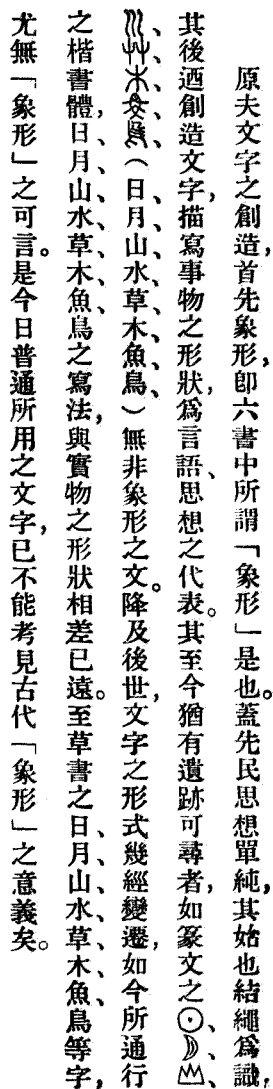 原夫文字之創造，首先象形，卽六書中所謂「象形」是也。蓋先民思想單純，其始也結繩爲識，
其後迺創造文字，描寫事物之形狀，爲言語、思想之代表。其至今猶有遺跡可尋者，如篆文之☉、、、
、、、、（日、月、山、水、草、木、魚、鳥、）無非象形之文。降及後世，文字之形式幾經變遷，如今所通行
之楷書體，日、月、山、水、草、木、魚、鳥之寫法，與實物之形狀相差已遠。至草書之日、月、山、水、草、木、魚、鳥等字，
尤無「象形」之可言。是今日普通所用之文字，已不能考見古代「象形」之意義矣。